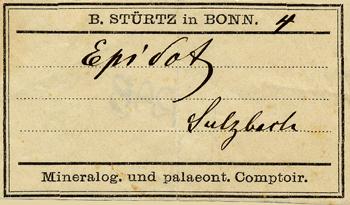 B. STÜRTZ in BONN. 4
Epidot
Sulzbach
Mineralog. und palaeont. Comptoir.